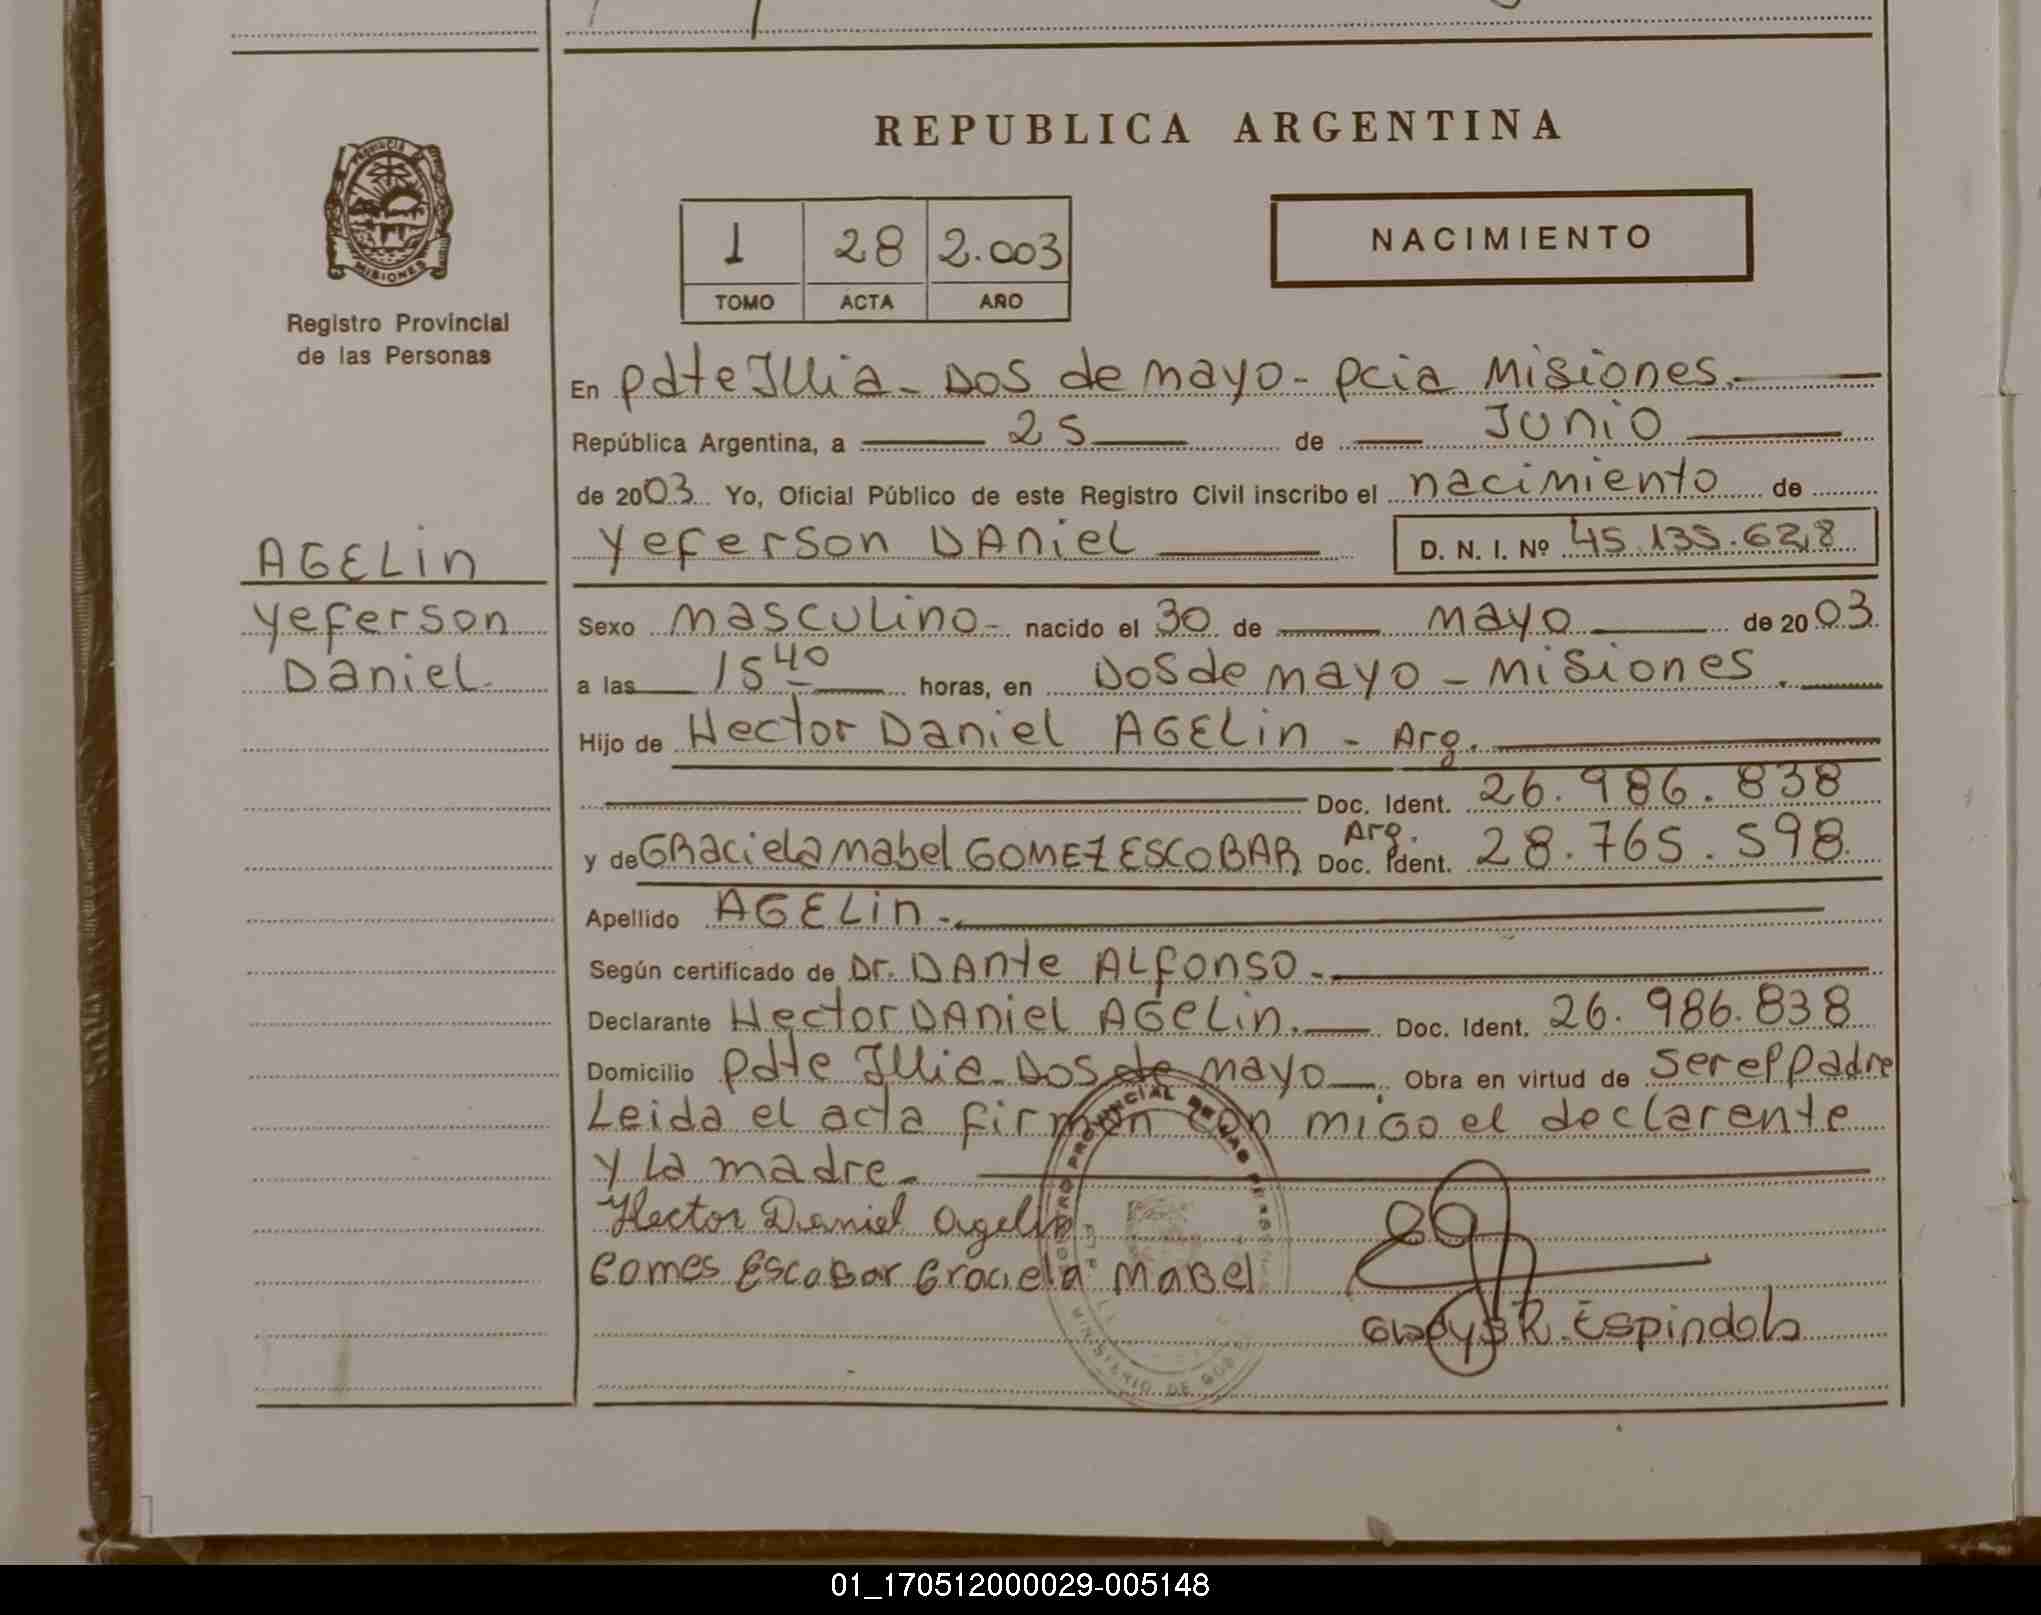 REPUBLICA ARGENTINA
PROVINCIA DE
MISIONES
Registro Provincial
de las Personas
1 28 2.003
TOMO ACTA AÑO
NACIMIENTO
En pdte Illia - Dos de mayo - pcia Misiones.
República Argentina, a 25 de Junio
de 2003 Yo, Oficial Público de este Registro Civil inscribo el nacimiento de
Yeferson DANiel D. N. I. Nº 45.135.628
AGELin
Yeferson
Daniel
Sexo masculino - nacido el 30 de mayo de 2003
a las 15 40 horas, en Dos de mayo - misiones.
Hijo de Hector Daniel AGELin - Arg.
Doc. Ident. 26.986.838
y de GRaciela mabel GOMEZ ESCOBAR Arg. Doc. Ident. 28.765.598
Apellido AGELin.
Según certificado de Dr. DANte ALfonso -
Declarante Hector DANiel AGELin. Doc. Ident. 26.986.838
Domicilio pdte Illia - Dos de mayo Obra en virtud de ser el padre
Leida el acta firman con migo el declarente
y la madre -
Hector Daniel Agelin
Gomes Escobar Graciela Mabel
Gladys R. Espindola
MINISTERIO DE GOB
01_170512000029-005148